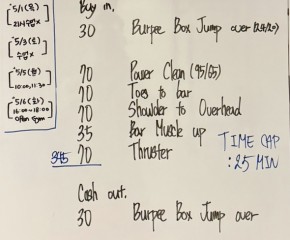 5/1 (목)
21시수업 x
5/3 (토)
수업 x
5/5 (월)
10:00, 11:30
5/6 (화)
16:00~18:00
Open Gym
Buy in.
30 Burpee Box Jump over (24/20)
70 Power Clean (95/65)
70 Toes to bar
70 Shoulder to Overhead
35 Bar Muscle up
345 70 Thruster
TIME CAP
: 25 MIN
Cash out.
30 Burpee Box Jump over